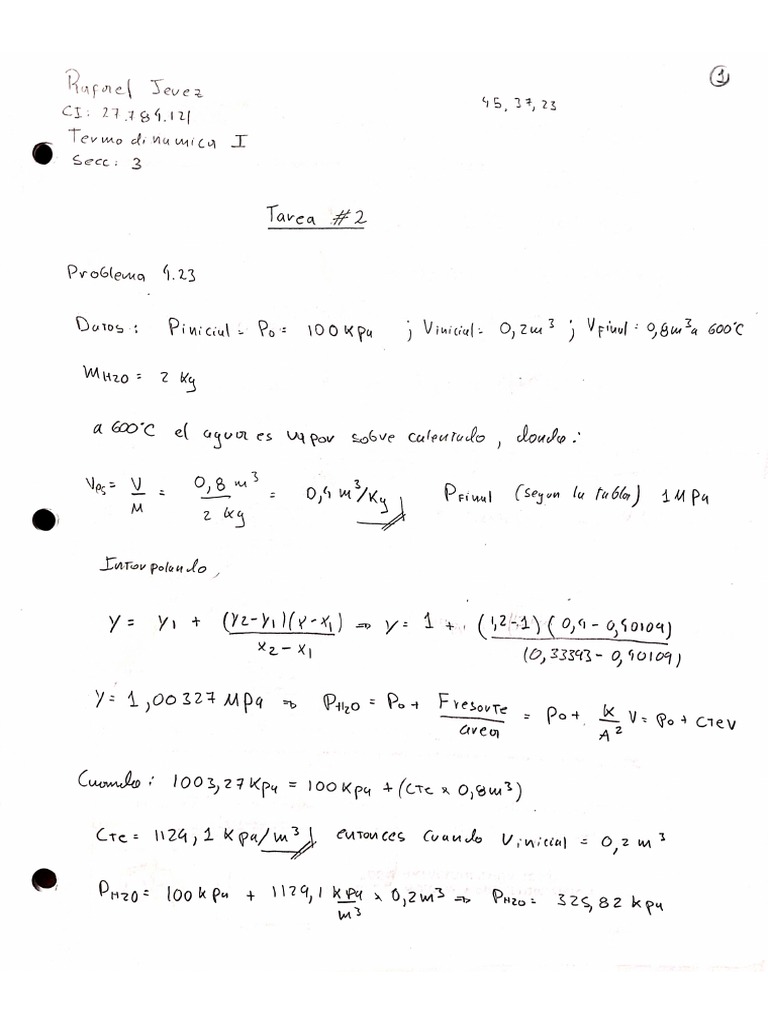 1
Rafael Jevez
45, 37, 23
CI: 27.784.121
Termodinamica I
Secc: 3
Tarea #2
Problema 4.23
Datos: Pinicial = P0 = 100 KPa ; Vinicial = 0,2 m³ ; VFinal = 0,8 m³ a 600°C
mH2O = 2 Kg
a 600°C el agua es vapor sobre calentado, donde:
Ves = V/M = 0,8 m³/2 Kg = 0,4 m³/Kg PFinal (segun la tabla) 1 MPa
Interpolando,
y = y1 + (y2-y1)(x-x1)/x2-x1 ⇒ y = 1 + (1,2-1)(0,4-0,40109)/(0,33393-0,40109)
y = 1,00327 MPa ⇒ PH2O = P0 + Fresorte/area = P0 + K/A² V = P0 + CTeV
Cuando: 1003,27 KPa = 100 KPa + (CTe x 0,8 m³)
CTe = 1129,1 KPa/m³ entonces cuando Vinicial = 0,2 m³
PH2O = 100 KPa + 1129,1 KPa/m³ x 0,2 m³ ⇒ PH2O = 325,82 KPa